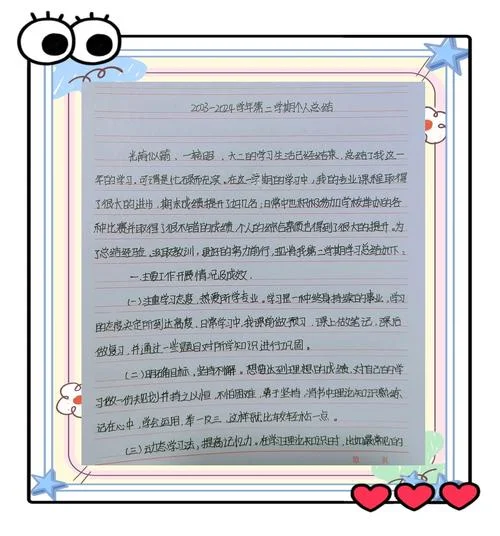 2023-2024学年第二学期个人总结
光阴似箭，一转眼，大二的学习生活已经结束，总结了我这一
年的学习，可谓是忙碌而充实。在这一学期的学习中，我的专业课程取得
了很大的进步，期末成绩提升了几名；日常中也积极参加学校举办的各
种比赛并取得了很不错的成绩，个人的综合素质也得到了很大的提升。为
了总结经验，汲取教训，更好的努力前行，现将我第二学期学习总结如下：
一、主要工作开展情况及成效。
（一）注重学习态度，热爱所学专业。学习是一种终身持续的事业，学习
的态度决定所到达高度，日常学习中，我课前做预习，课上做笔记，课后
做复习，并通过一些题目对所学知识进行巩固。
（二）明确目标，坚持不懈。想要达到理想的成绩，对自己的学
习做一份规划并持之以恒，不怕困难，勇于坚持，将书中理论知识熟练
记在心中，学会运用，举一反三，这样就比较轻松一点。
（三）动态学习法，提高记忆力。在学习理论知识时，比如最常见的
第 页